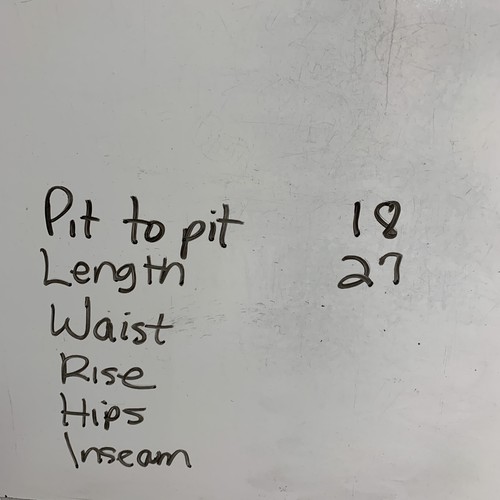 Pit to pit 18
Length 27
Waist
Rise
Hips
Inseam